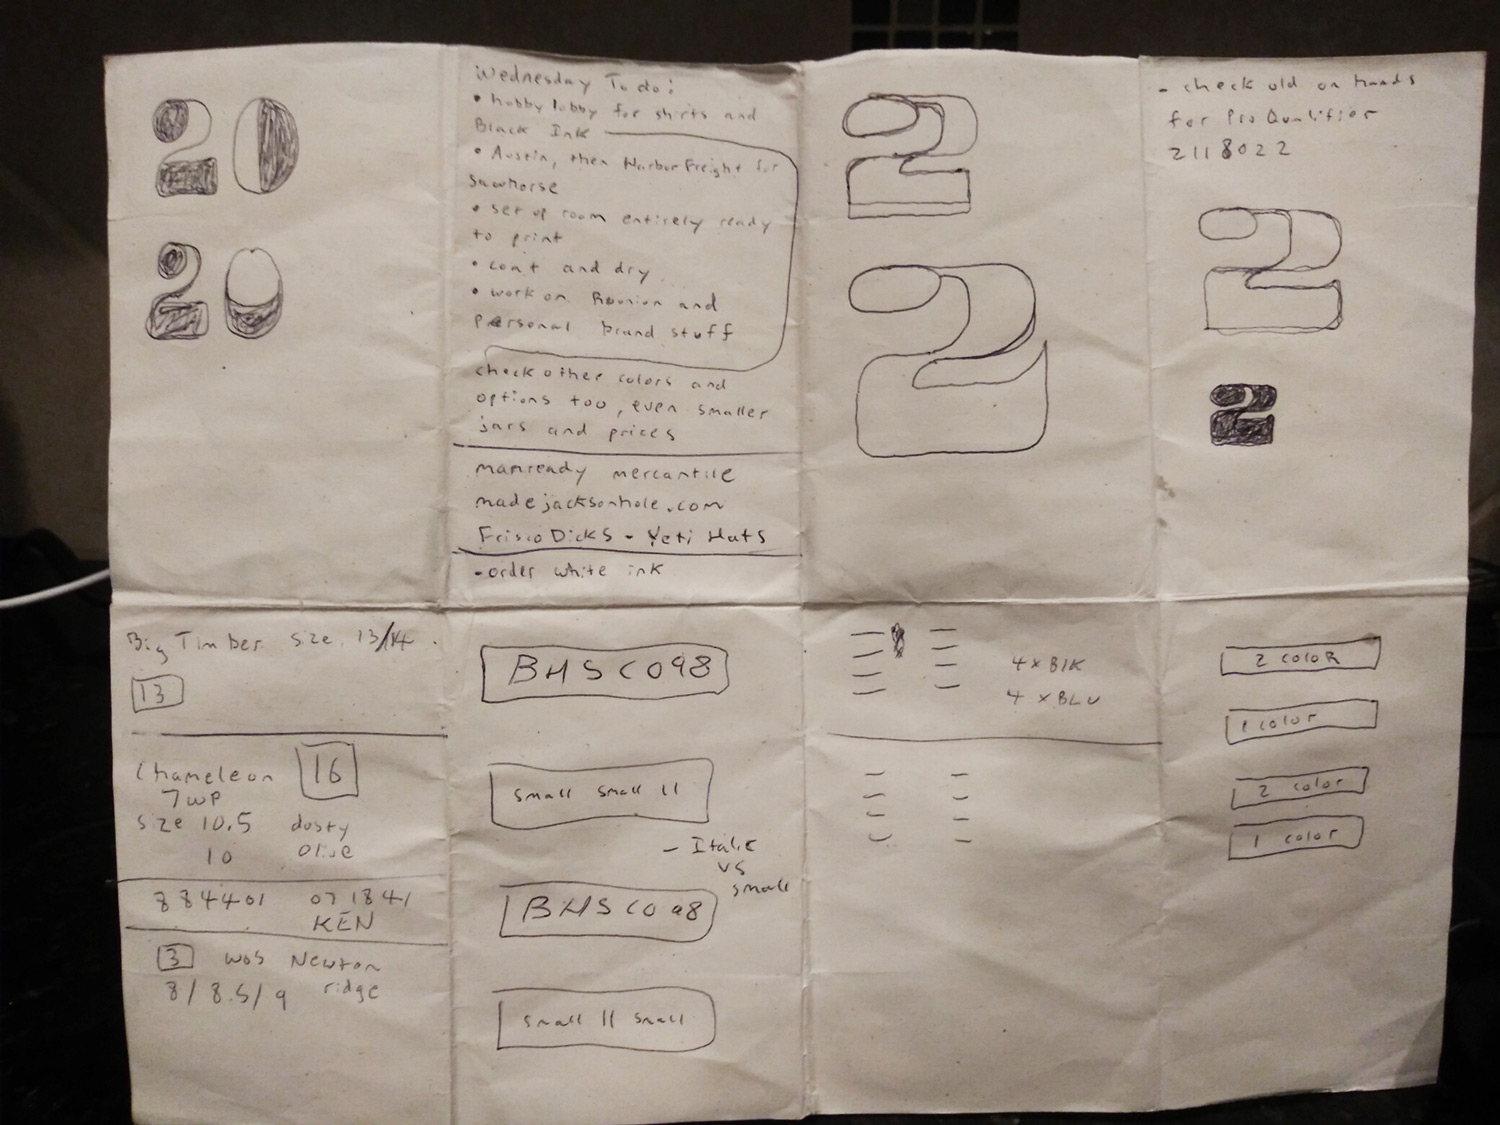 20
20
Wednesday To do:
• hobby lobby for shirts and
Black Ink
• Austin, then Harbor Freight for
sawhorse
• set up room entirely ready
to print
• coat and dry
• work on Reunion and
personal brand stuff
check other colors and
options too, even smaller
jars and prices
manready mercantile
madejacksonhole.com
Frisco Dicks - Yeti Hats
- order white ink
2
2
- check old on hands
for Pro Qualifier
2118022
2
2
Big Timber size 13/14
13
Chameleon 16
7wp
size 10.5 dusty
10 olive
884401 071841
KEN
3 wos Newton
8/8.5/9 ridge
BHSCO98
small small ||
- Italic
vs
small
BHSCO98
small || small
4 x Blk
4 x BLU
2 color
1 color
2 color
1 color